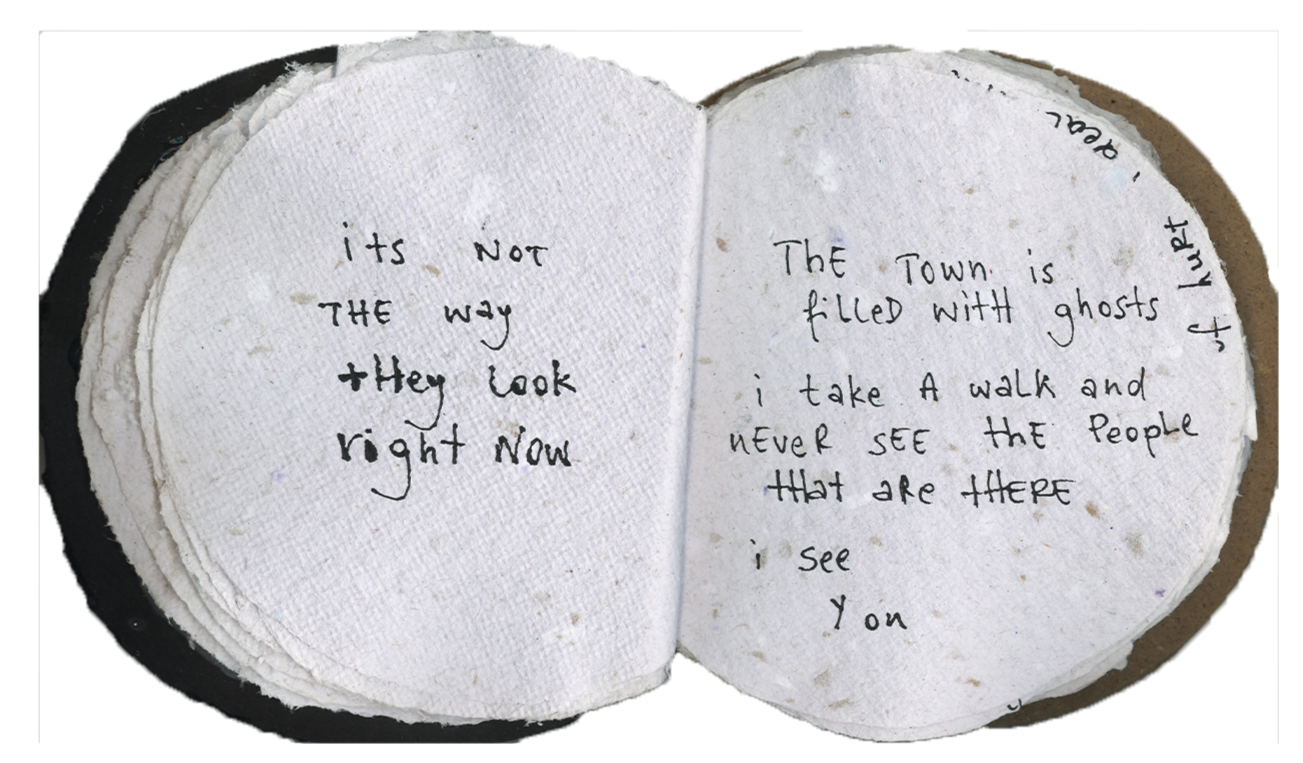 its NOT
THE way
tHey look
right Now
ThE Town is
fillED witH ghosts
i take A walk and
nEveR sEE thE People
tHat aRe tHERE
i see
you